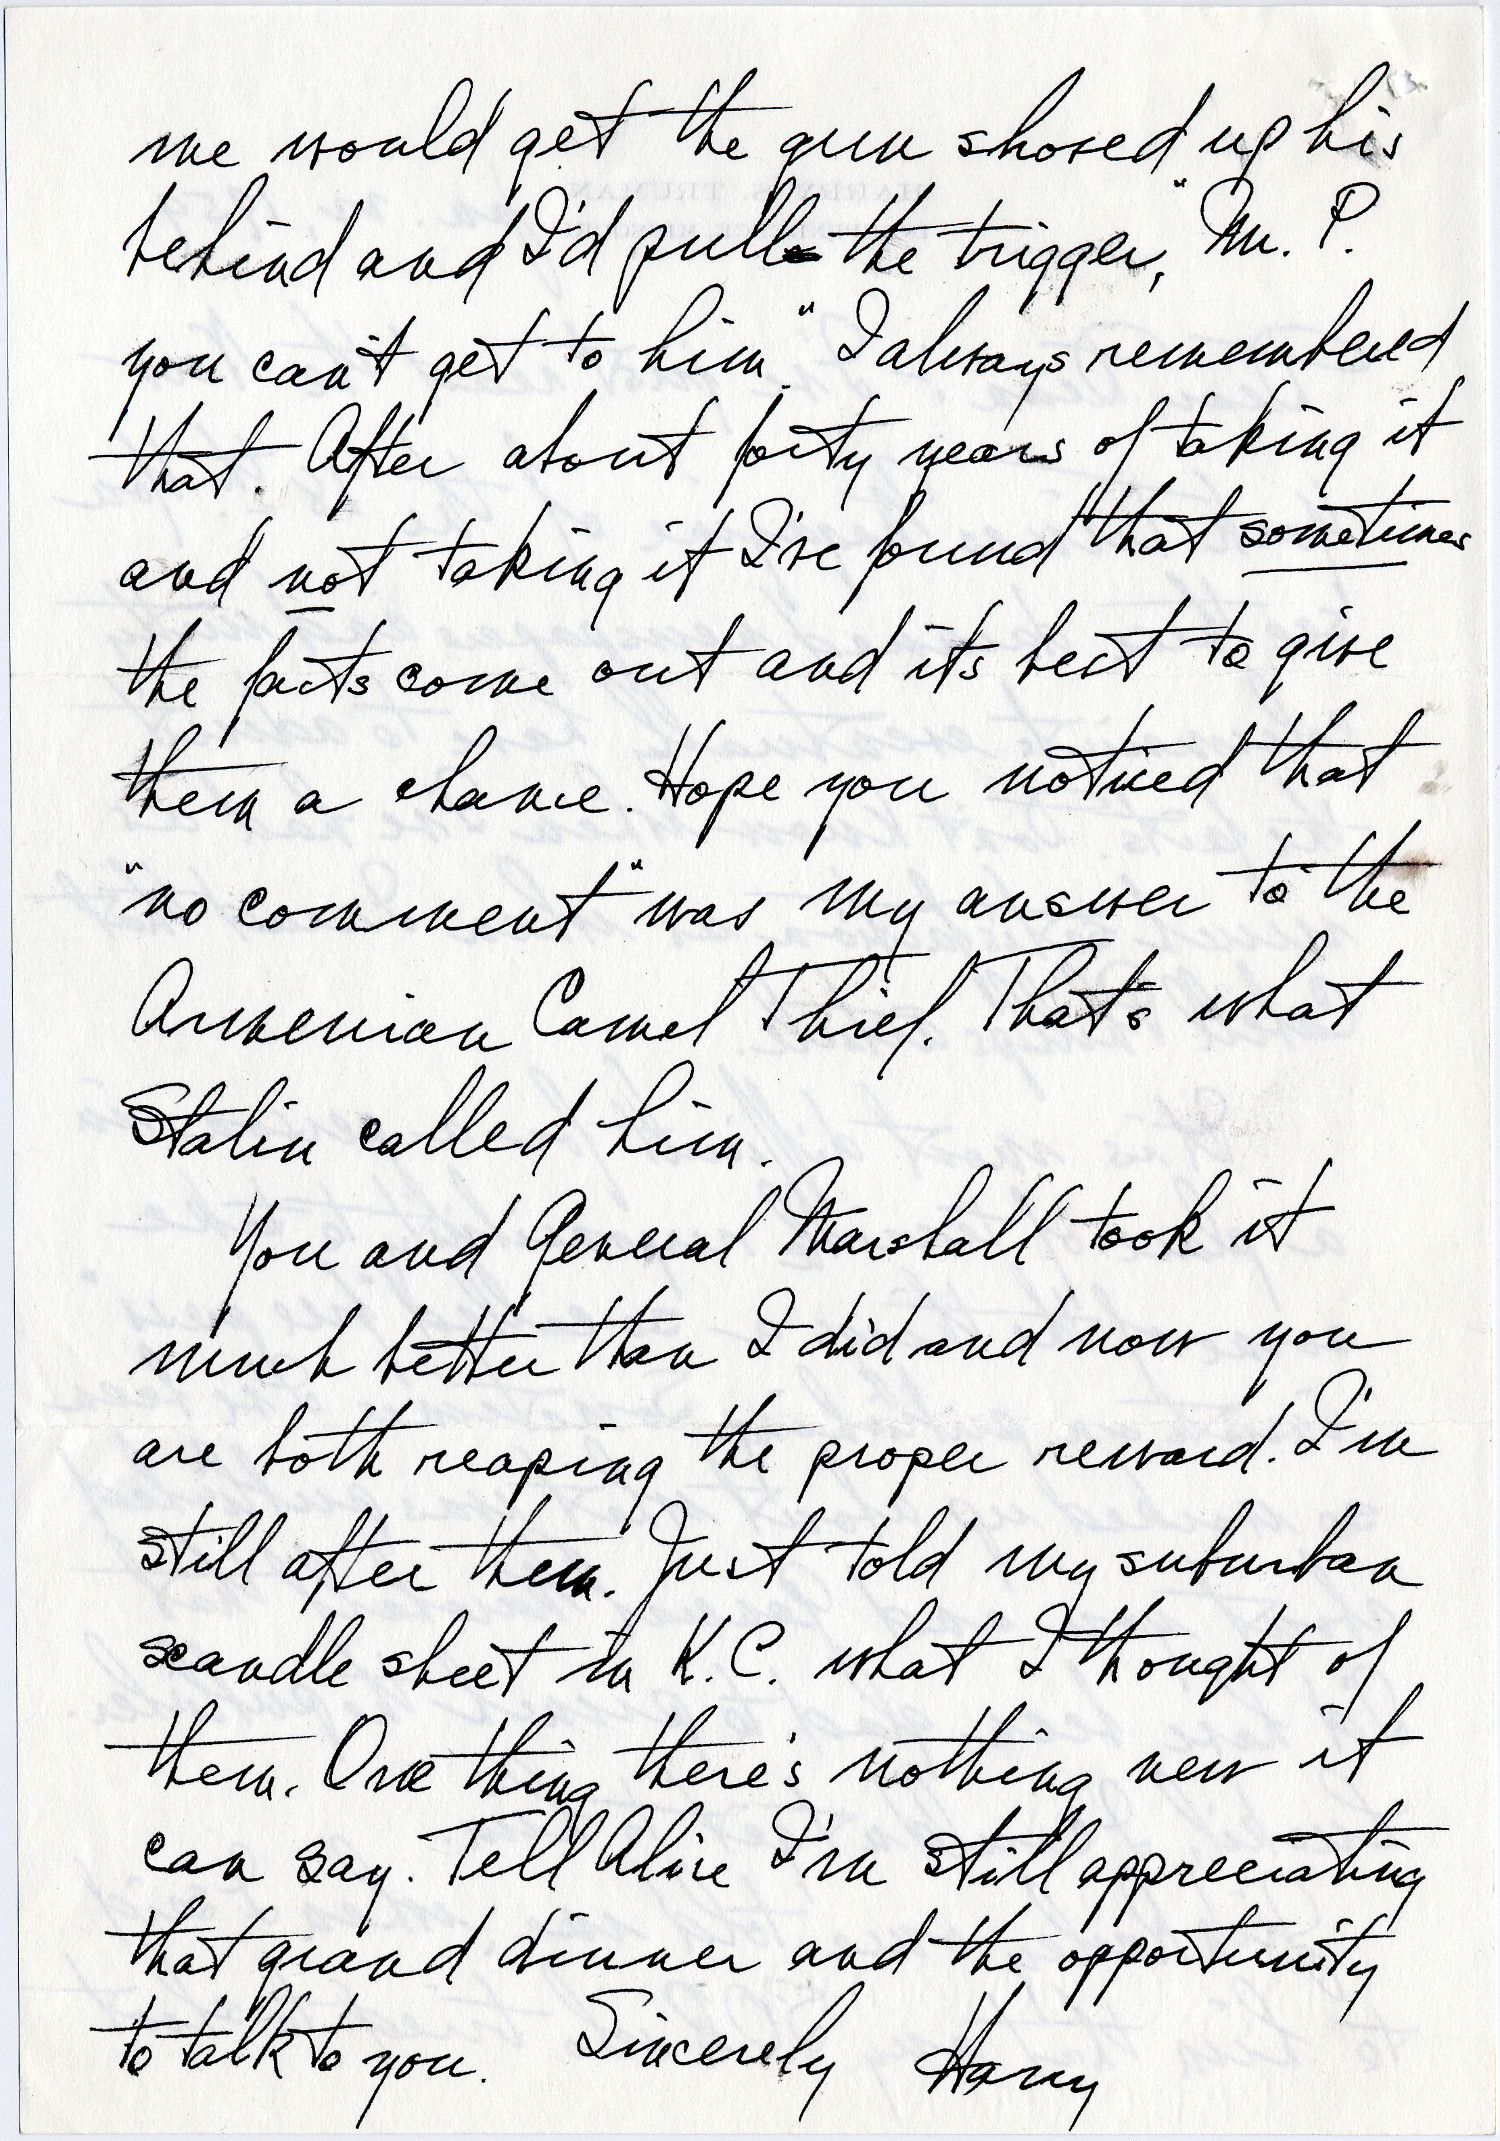 me would get the gun shoved up his
behind and I'd pull the trigger," Mr. P.
you can't get to him." I always remembered
that. After about forty years of taking it
and not taking it I've found that sometimes
the facts come out and its best to give
them a chance. Hope you noticed that
"no comment" was my answer to the
Armenian Camel Thief. That's what
Stalin called him.
You and General Marshall took it
much better than I did and now you
are both reaping the proper reward. I'm
still after them. Just told my suburban
scandle sheet in K.C. what I thought of
them. One thing there's nothing new it
can say. Tell Alice I'm still appreciating
that grand dinner and the opportunity
to talk to you. Sincerely Harry